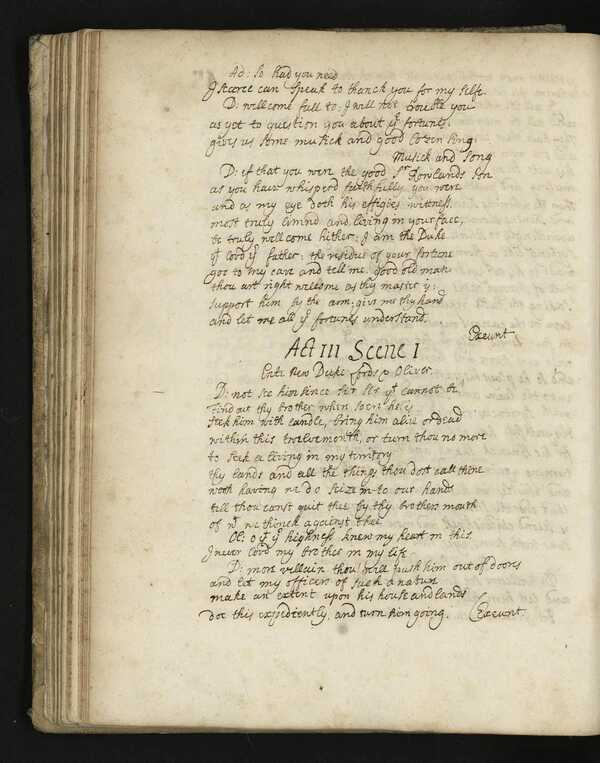 Ad: So had you need
I scarce can speak to thanck you for my selfe.
D: wellcome fall to: I will not trouble you
as yet to question you about yr fortunes.
give us some musick and good Cozen sing.
Musick and Song
D: if that you were the good Sr Rowlands Son
as you have whisperd faithfully you were
and as my eye doth his effigies wittness,
most truly limnd and living in your face,
be truly wellcome hither: I am the Duke
yt lovd yr father: the residue of your fortune
goe to my cave and tell me. good old man
thou art right wellcome as thy master is:
support him by the arm; give me thy hand
and let me all yr fortunes understand.
Exeunt
Act III Scene I
Enter New Duke Lords & Oliver.
D: not see him since Sir Sir yt cannot be!
Find out thy brother when soere he is
seek him with candle, bring him alive or dead
within this twelvemonth, or turn thou no more
to seek a living in my territory
thy lands and all the things thou dost call thine
worth having we do seize into our hands
till thou canst quit thee by thy brothers mouth
of wt we thinck against thee.
Ol: o yt yr highness knew my heart in this
I never lovd my brother in my life.
D: more villain thou! well push him out of doors
and let my officers of such a nature
make an extent upon his house and lands
doe this expediently, and turn him going. Exeunt.